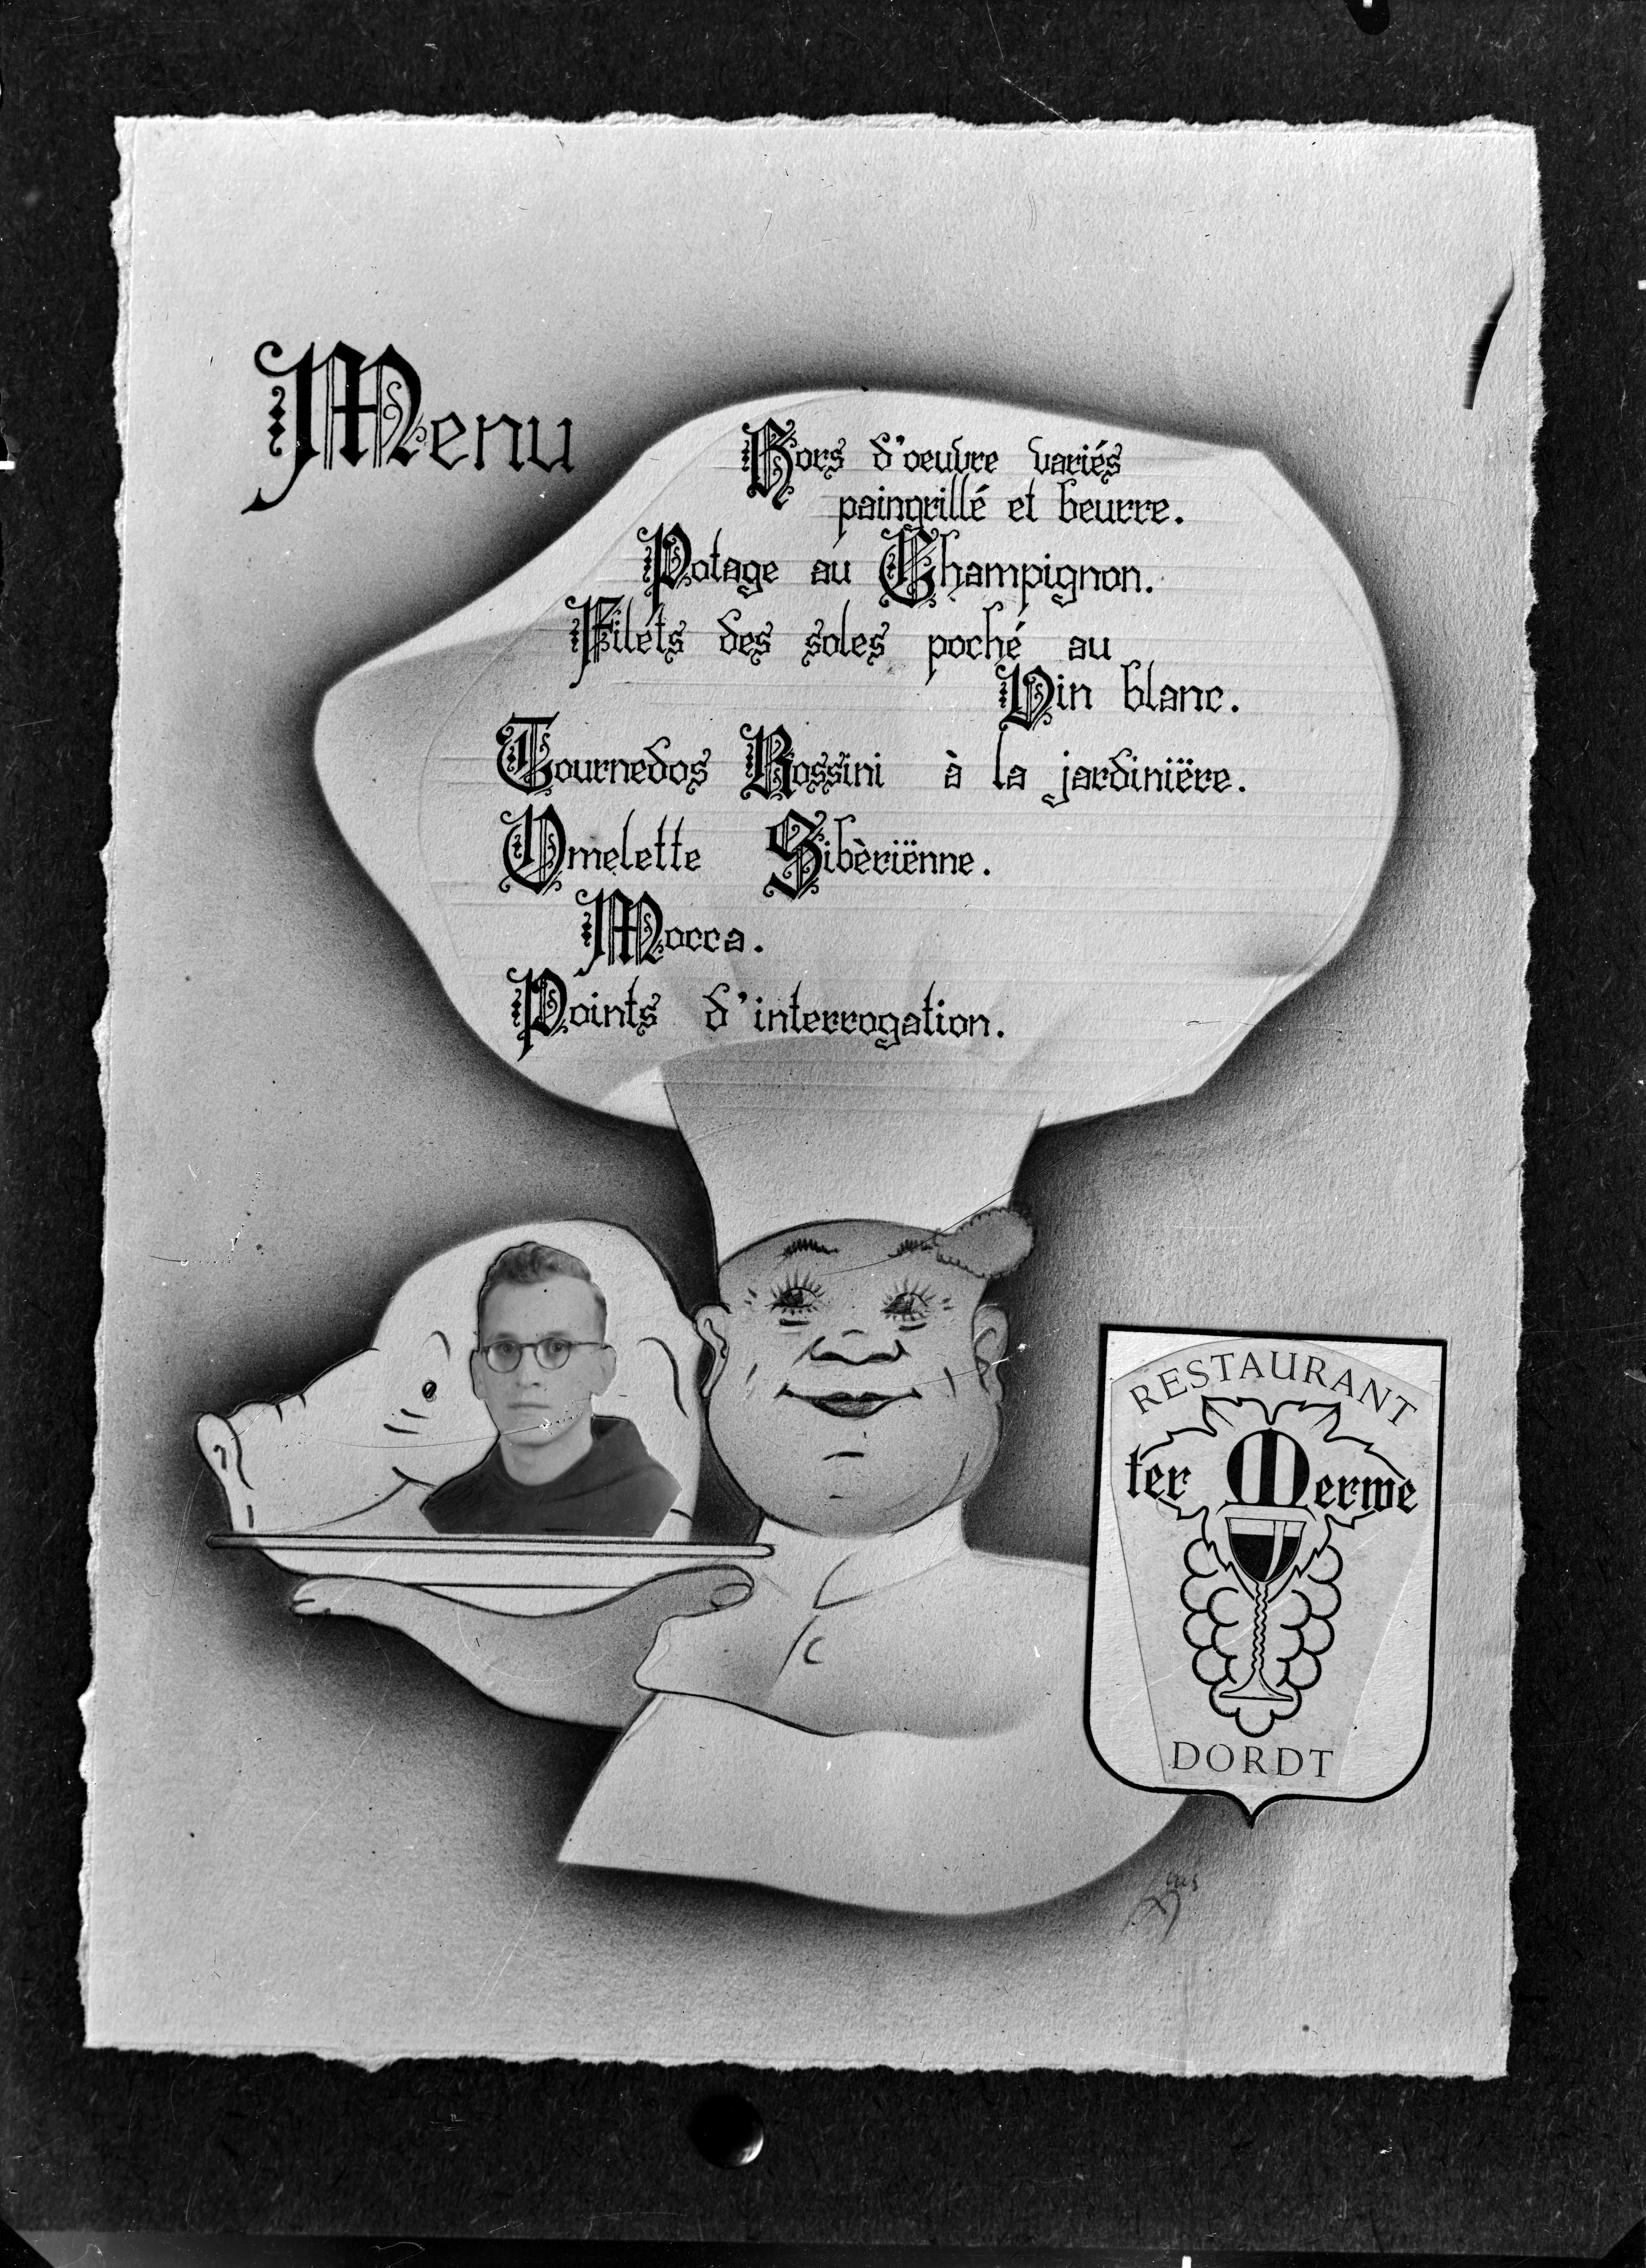 Menu
Hors d'oeuvre variés
paingrillé et beurre.
Potage au Champignon.
Filets des soles poché au
Vin blanc.
Tournedos Rossini à la jardiniëre.
Omelette Sibèriënne.
Mocca.
Points d'interrogation.
RESTAURANT
ter Merwe
DORDT